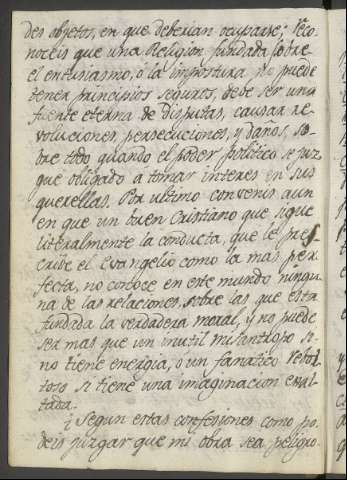 des objetos, en que deberian ocuparse; Reco-
noceis que una Religion fundada sobre
el entusiasmo, ó la impostura no puede
tener principios seguros, debe ser una
fuente eterna de disputas, causar re-
voluciones, persecuciones, y daños, so-
bre todo quando el poder politico se juz-
gue obligado a tomar interes en sus
querellas. Por ultimo convenis aun
en que un buen Cristiano que sigue
literalmente la conducta, que le pres-
cribe el Evangelio como la mas per-
fecta, no conoce en este mundo ningu-
na de las relaciones sobre las que está
fundada la verdadera moral, y no puede
ser mas que un inutil misantropo si-
no tiene energia, ó un fanatico rebol-
toso si tiene una imaginacion exal-
tada.
¿Segun estas confesiones como po-
deis juzgar que mi obra sea peligro-